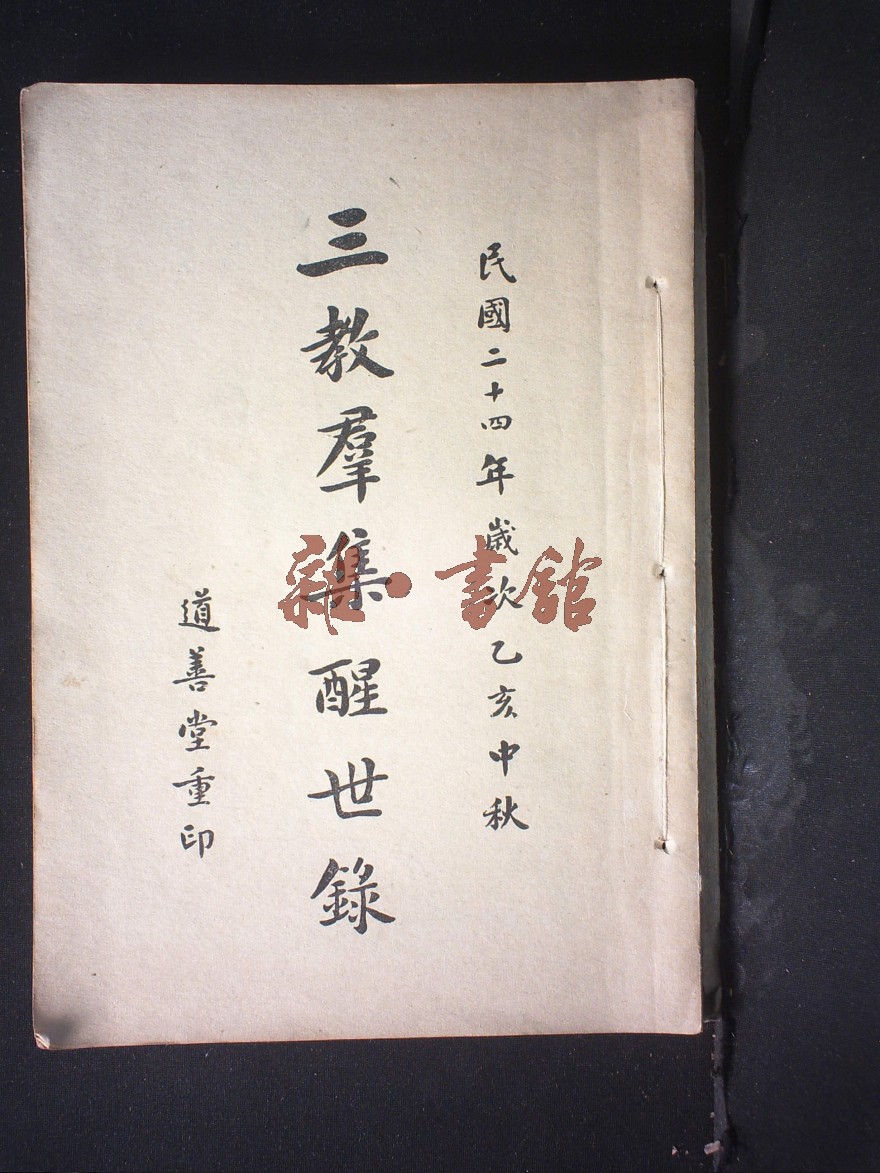 民國二十四年歲次乙亥中秋
三教羣集醒世錄
道善堂重印
雜·書館